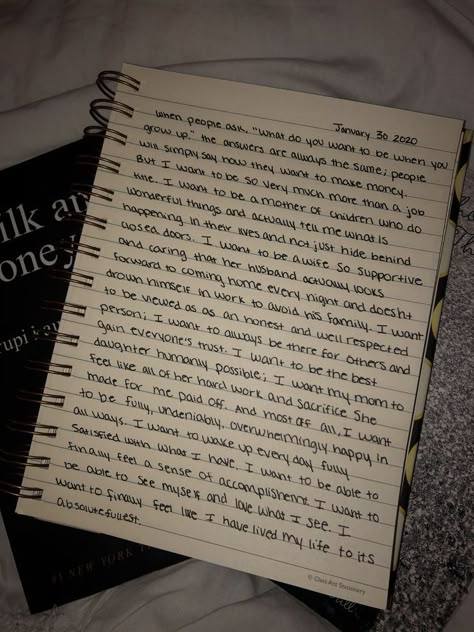 January 30 2020
When people ask, "What do you want to be when you
grow up." the answers are always the same; people
will simply say how they want to make money.
But I want to be so very much more than a job
title. I want to be a mother of children who do
wonderful things and actually tell me what is
happening in their lives and not just hide behind
closed doors. I want to be a wife so supportive
and caring that her husband actually looks
forward to coming home every night and doesn't
drown himself in work to avoid his family. I want
to be viewed as as an honest and well respected
person; I want to always be there for others and
gain everyone's trust. I want to be the best
daughter humanly possible; I want my mom to
feel like all of her hard work and sacrifice she
made for me paid off. And most off all, I want
to be fully, undeniably, overwhelmingly happy in
all ways. I want to wake up every day fully
satisfied with what I have. I want to be able to
finally feel a sense of accomplishment. I want to
be able to see myself and love what I see. I
want to finally feel like I have lived my life to its
absolute fullest.
© Class Act Stationery
ilk an
oney
rupi kau
#1 NEW YORK